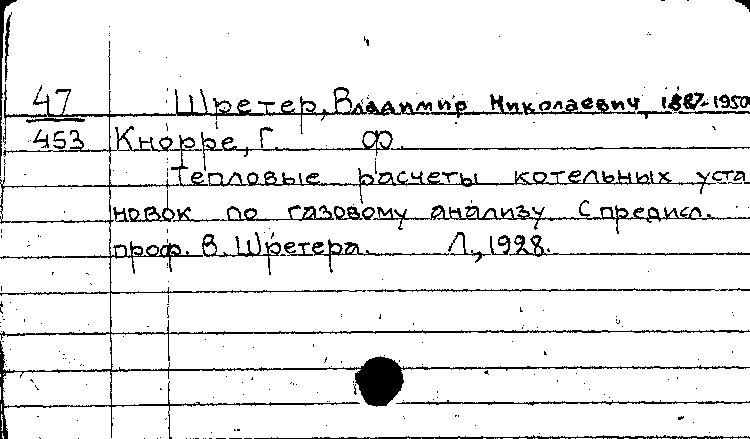 47 Шретер, Владимир Николаевич, 1887-1950
453 Кнорре, Г. Ф.
Тепловые расчеты котельных уста
новок по газовому анализу. С предисл.
проф. В. Шретера. Л., 1928.